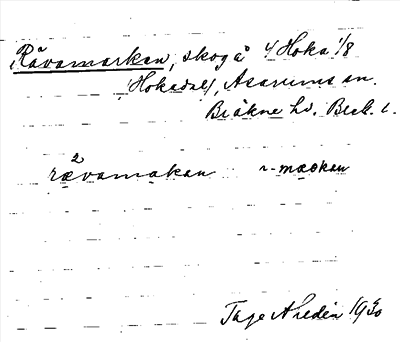 Rävamarken, skog å ⁴/ Hoka ¹/8
Hokadal/, Asarums sn.
Bräkne hd. Blek. l.
rä²vamakan r-maskan
Tage Ahredin 1930